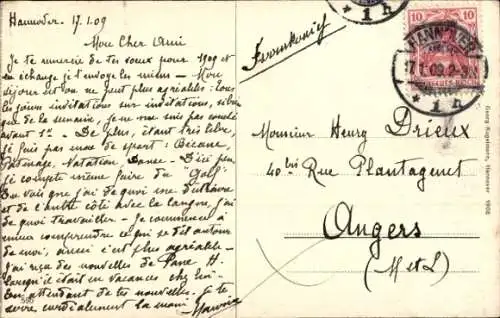 Hannover. 17.1.09
Mon Cher Ami
Je te remercie de tes vœux pour 1909 et
en échange je t'envoye les miens - Mon
séjour est on ne peut plus agréable: tous
les jours invitations sur invitations, si bien
que de la semaine, je ne me suis pas couché
avant 1h - De plus, étant très libre,
je fais pas mal de sport: Bécane,
Patinage, Natation, Danse - D'ici peu
je compte même faire du "Golf"
Tu vois que j'ai de quoi me distraire
et de l'autre côté avec la langue, j'ai
de quoi travailler - Je commence à
mieux comprendre ce qui se dit autour
de moi, aussi c'est plus agréable -
J'ai reçu des nouvelles de H.
lorsqu'il était en vacances chez lui -
En attendant de tes nouvelles. Je te
serre cordialement la main
Frankreich
10
HANNOVER
17.1.09
* 1 h
* 1 h
Monsieur Henry Drieux
40 bis Rue Plantagenet
Angers
(M et L)
Georg Kugelmann, Hannover 1908